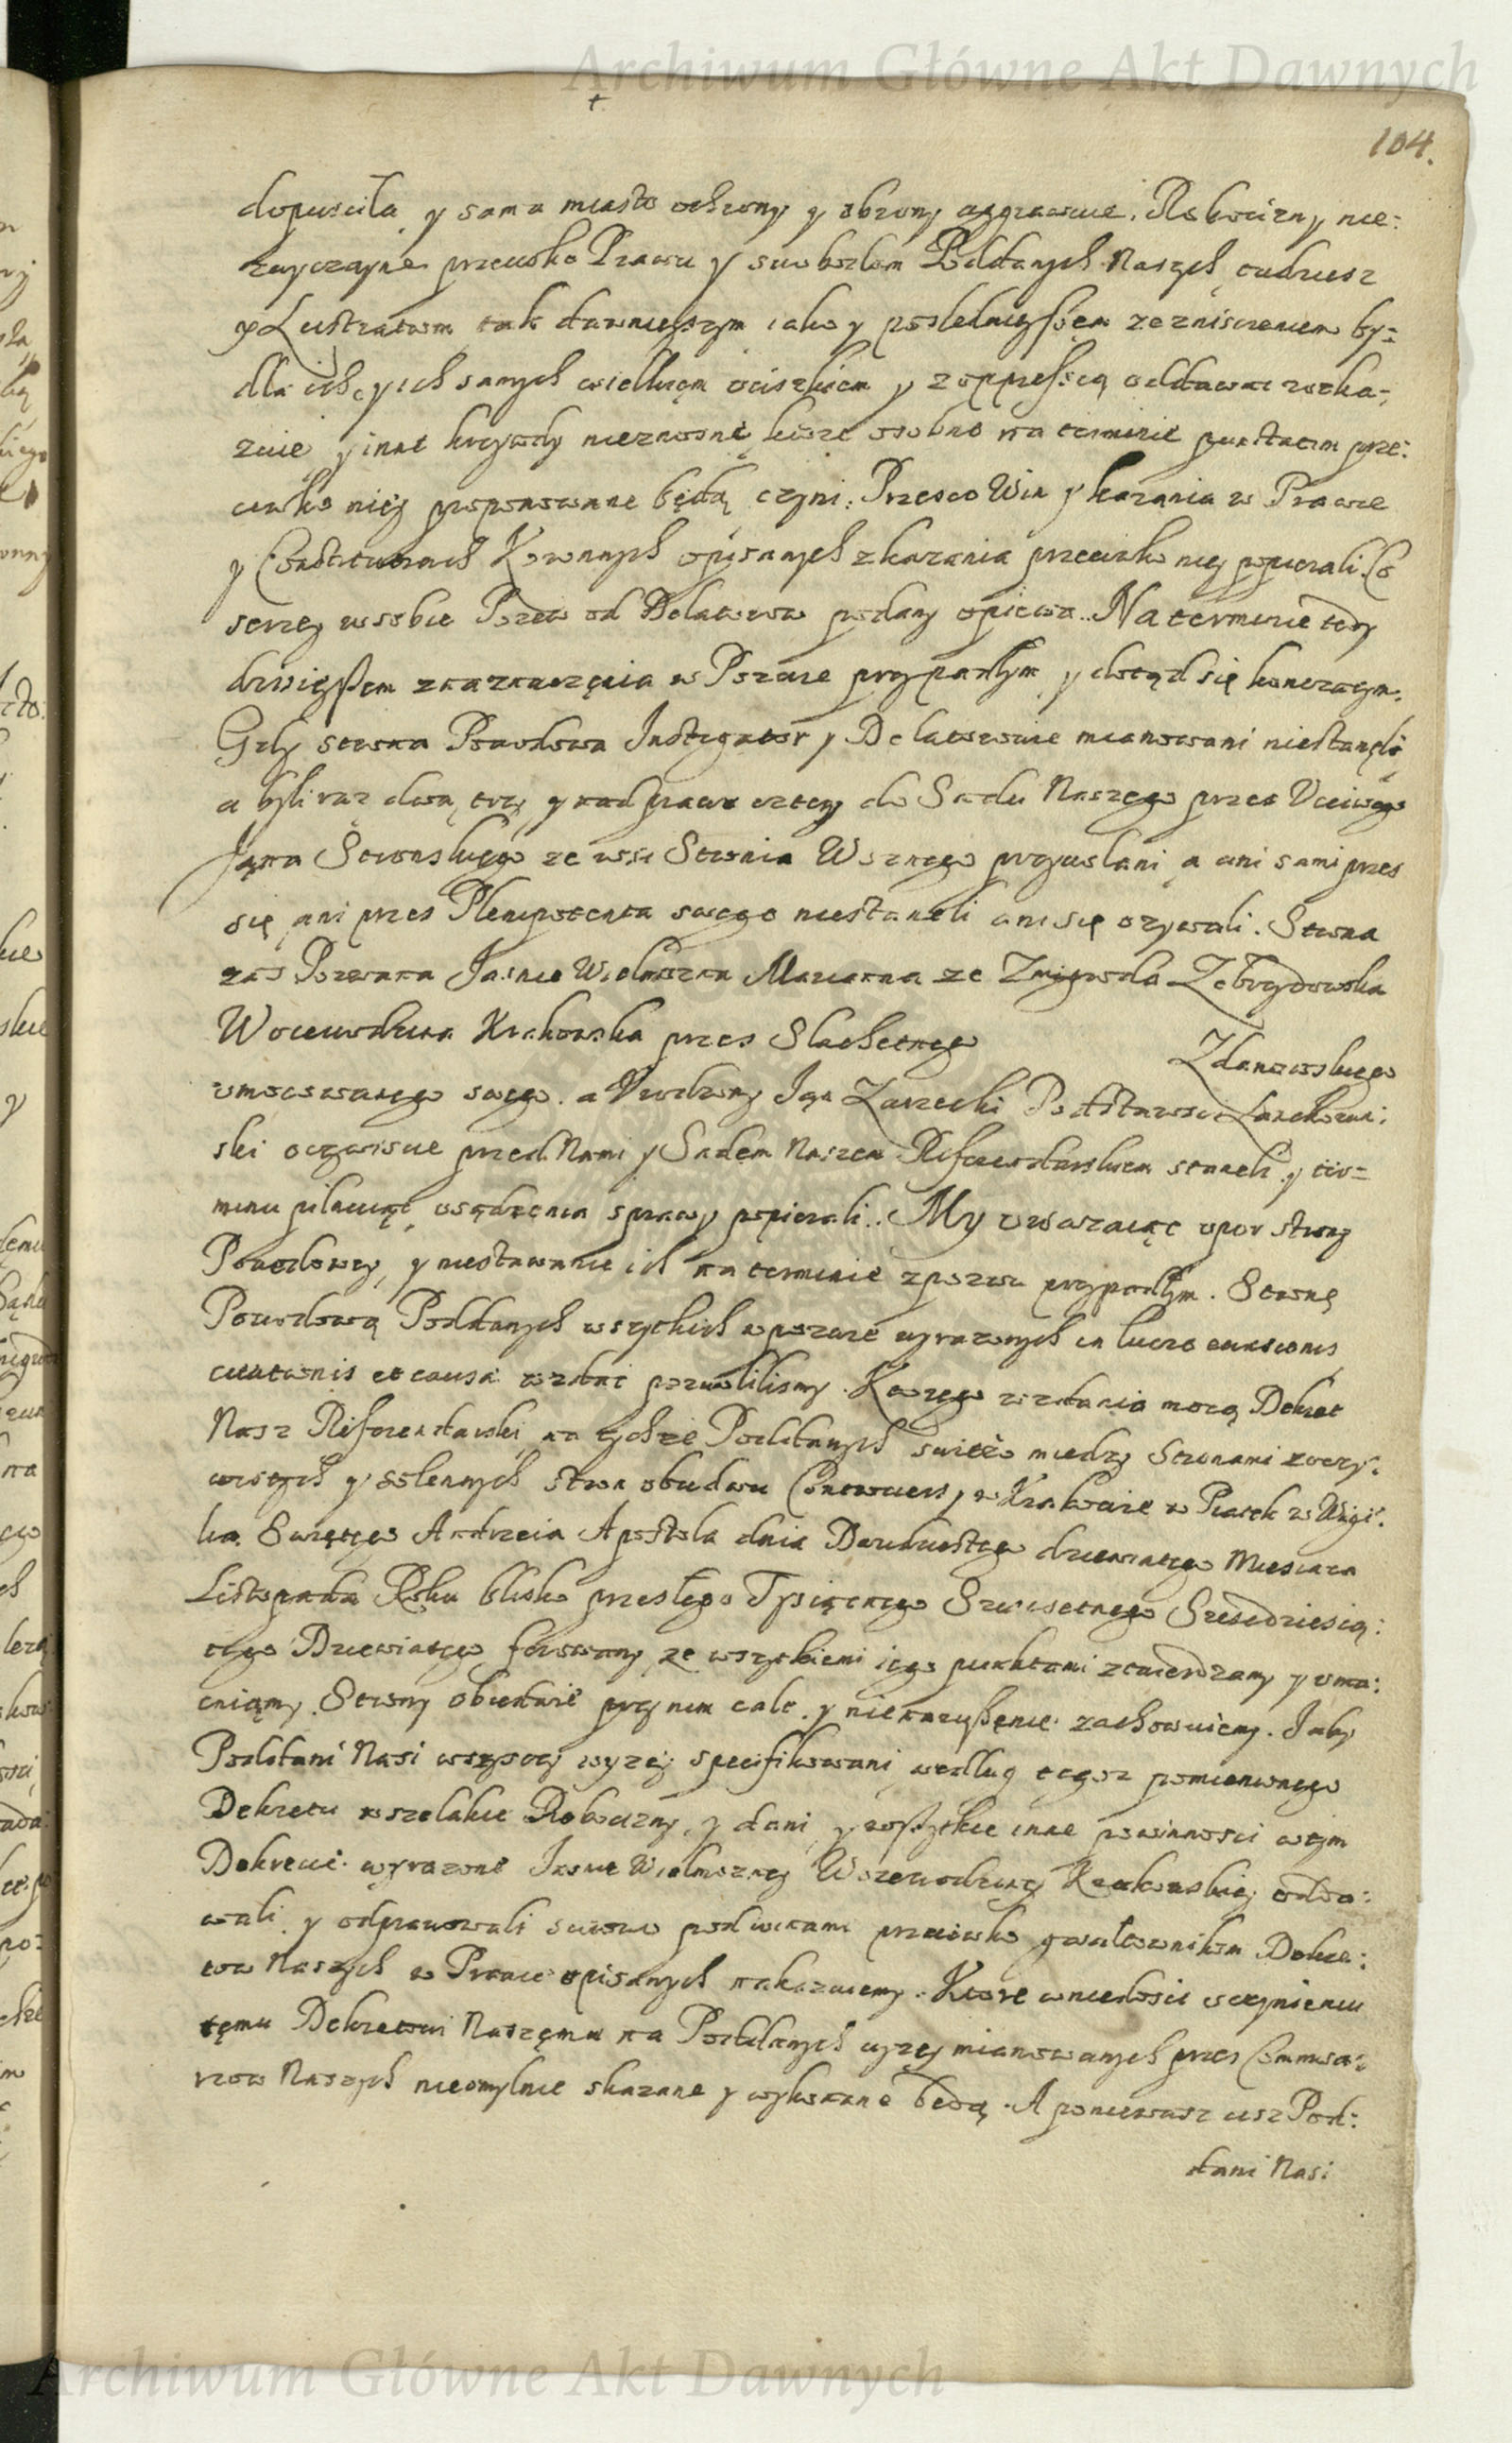 Archiwum Główne Akt Dawnych
104.
dopusciła, y sama miasto ochrony y obrony aggrawuie. Robocizny nie:
zwyczayne przeciwko Prawu y swobodom Poddanych Naszych, tudziesz
y Lustratiom tak dawnieyszym iako y poslednieyszem ze zniszczeniem by=
dła ich, y ich samych wielkięm uciszkiem y z oppressią oddawać rozka=
zuie y inne krzywdy nieznosne ktore osobno na terminie punctatim prze:
ciwko niey proponowane będą czyni. Przeto Win y karania w Prawie
y Constituciach Koronnych opisanych zkazania przeciwko niey popierali. Co
szerzey w sobie Pozew od Delatorow podany opiewa. Na terminie tedy
dzisieyszem z naznaczęnia w Pozwie przypadłym y dotąd się konczącym.
Gdy strona Powodowa Instigator y Delatorowie mianowani niestanęli
a byli raz dwa, trzy, y nad prawo czterzy do Sadu Naszego przes Vcciwego
Jana Stronskiego ze wsi Stronia Woznego przywołani, a ani sami przes
się, ani przes Plenipotenta swego niestaneli ani się ozywali. Strona
zas Pozwana Jasnie Wielmozna Marianna ze Zmigroda Zebrzydowska
Woiewodzina Krakowska przes Slachetnego Zdanowskiego
vmocowanego swego. a Vrodzony Jan Zarzecki Podstarosci Lanckorun:
ski oczywiscie przed Nami y Sądem Naszem Referendarskiem stanęli y ter=
minu pilnuiąc, osądzenia sprawy popierali. My vwazaiąc vpor strony
Powodowey, y niestawanie ich na terminie z pozwu przypadłym. Stronę
Powodową Poddanych wszytkich w pozwie wyrazonych in lucro evasionis
citationis et causæ wzdać pozwolilismy. Ktorego wzdania mocą Dekret
Nasz Referendarski na tychze Poddanych swiezo miedzy Stronami w oczy:
wistych y solennych stron obudwu Controuersy, w Krakowie w Piątek w Wigi:
lią Swiętego Andrzeia Apostoła dnia Dwudziestego dziewiątego Miesiąca
Listopada Roku blisko przeszłego Tysiącnego Szescsetnego Szescdziesią:
tego Dziewiątego ferowany ze wszytkiemi iego punktami ztwierdzamy y vma:
cniamy. Strony obiedwie przy nim cale y nienaruszęnie zachowuiemy. Jaby
Poddani Nasi wszyscy wyzey specifikowani według tegosz pomienionego
Dekretu wszelakie Robocizny, y dani, y wszytkie inne powinnosci w tym
Dekrecie wyrazone Jasnie Wielmozney Woiewodziney Krakowskiey oddа:
wali y odprawowali surowo pod winami przeciwko gwałtownikom Dekre:
tow Naszych w Prawie opisanych nakazuiemy. Ktore w niedosić vczynieniu
tęmu Dekretowi Naszęmu na Poddanych wyzey mianowanych przes Commisa:
rzow Naszych nieomylnie skazane y wykonane będą. A poniewasz cisz Pod:
dani Nasi
Archiwum Główne Akt Dawnych